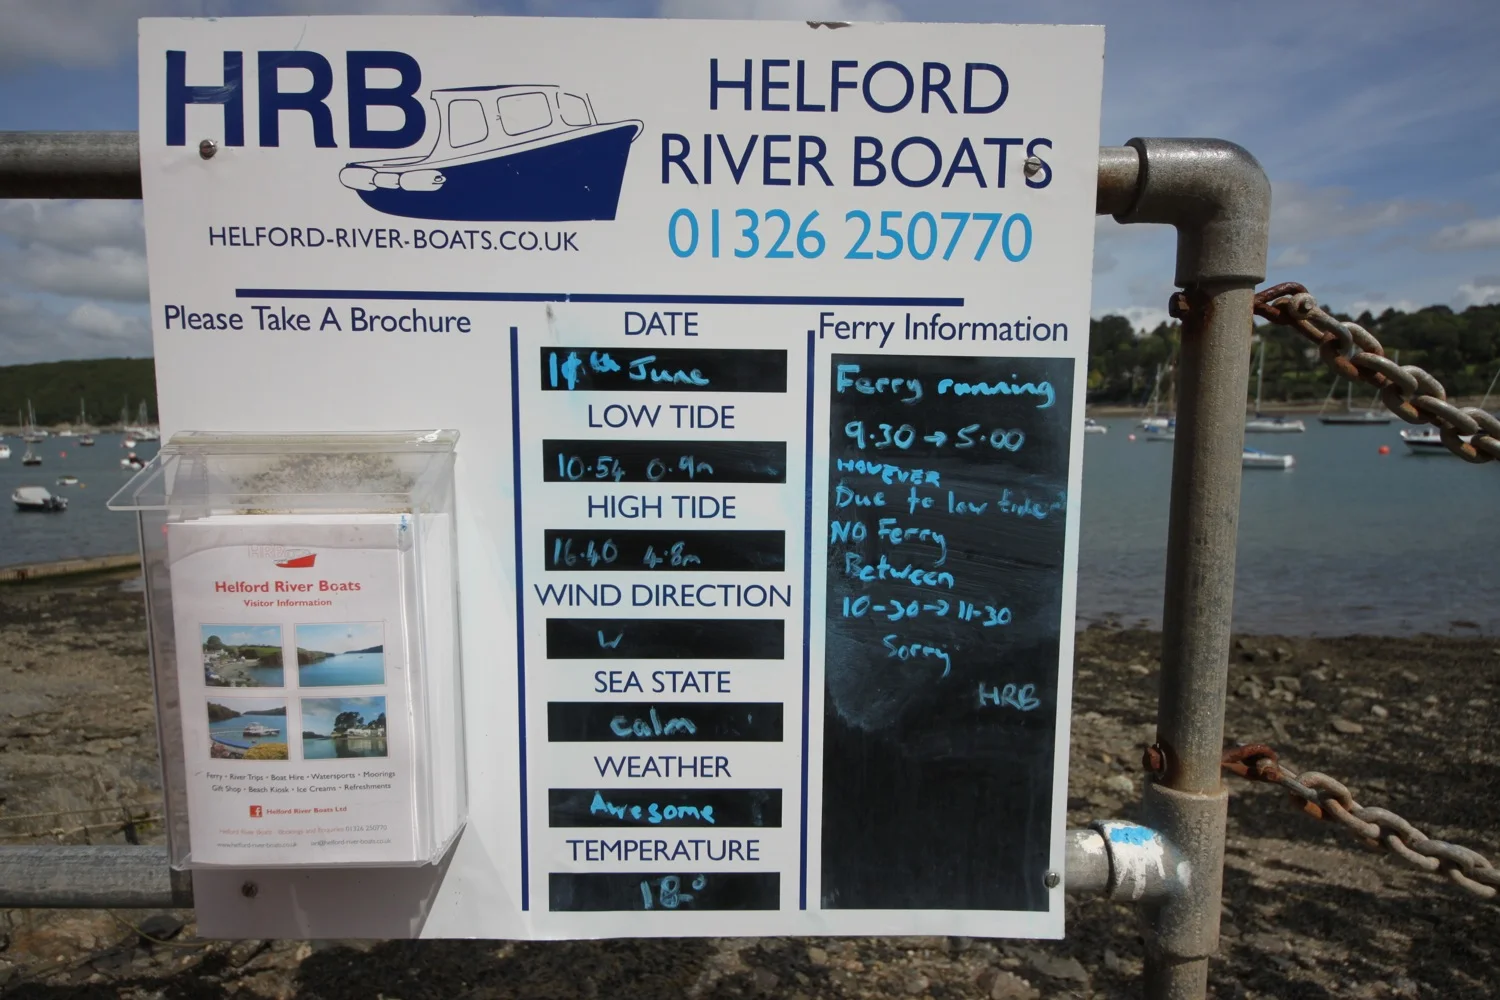 HRB
HELFORD-RIVER-BOATS.CO.UK
HELFORD
RIVER BOATS
01326 250770
Please Take A Brochure
HRB
Helford River Boats
Visitor Information
Ferry • River Trips • Boat Hire • Watersports • Moorings
Gift Shop • Beach Kiosk • Ice Creams • Refreshments
Helford River Boats Ltd
Helford River Boats - Bookings and Enquiries 01326 250770
www.helford-river-boats.co.uk
DATE
June
LOW TIDE
10.54 0.9m
HIGH TIDE
16.40 4.8m
WIND DIRECTION
W
SEA STATE
calm
WEATHER
Awesome
TEMPERATURE
18°
Ferry Information
Ferry running
9.30 → 5.00
HOWEVER
Due to low tides
NO Ferry
Between
10-30 → 11-30
Sorry
HRB